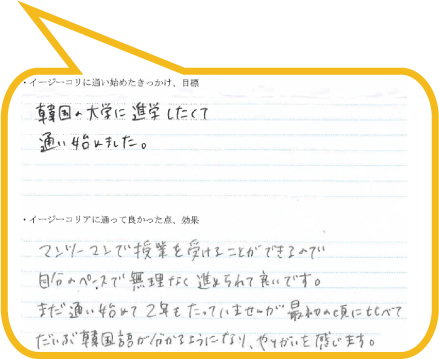 ・イージーコリに通い始めたきっかけ、目標
韓国の大学に進学したくて
通い始めました。
・イージーコリアに通って良かった点、効果
マンツーマンで授業を受けることができるので
自分のペースで無理なく進められて良いです。
まだ通い始めて2年もたっていませんが最初の頃に比べて
だいぶ韓国語が分かるようになり、やりがいを感じます。